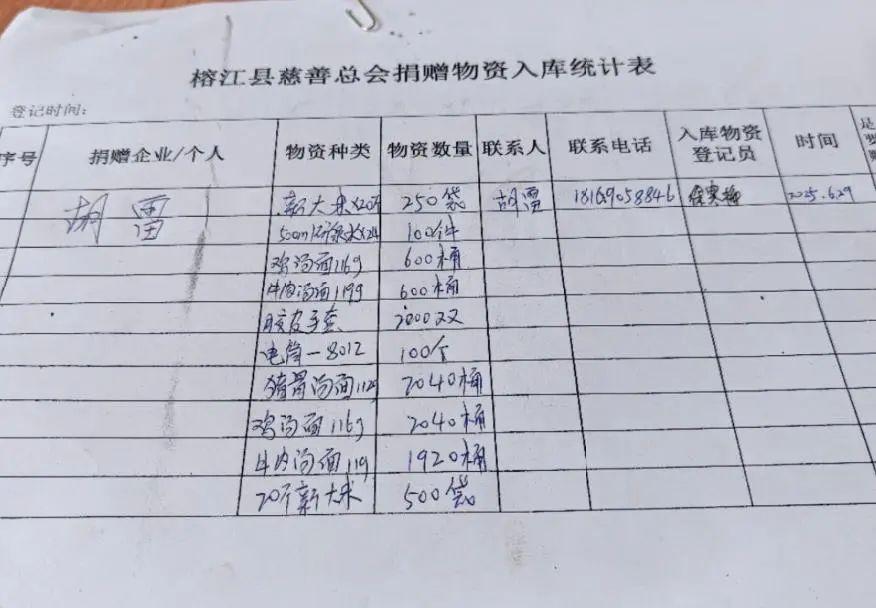 榕江县慈善总会捐赠物资入库统计表
登记时间:
序号 捐赠企业/个人 物资种类 物资数量 联系人 联系电话 入库物资登记员 时间
胡雷 新大米X20斤 250袋 胡雷 18169058846 2025.6.29
500ml矿泉水X24 100件
鸡汤面116g 600桶
牛肉汤面119g 600桶
胶皮手套 2000双
电筒-8012 100个
猪骨汤面112g 2040桶
鸡汤面116g 2040桶
牛肉汤面119 1920桶
20斤新大米 500袋